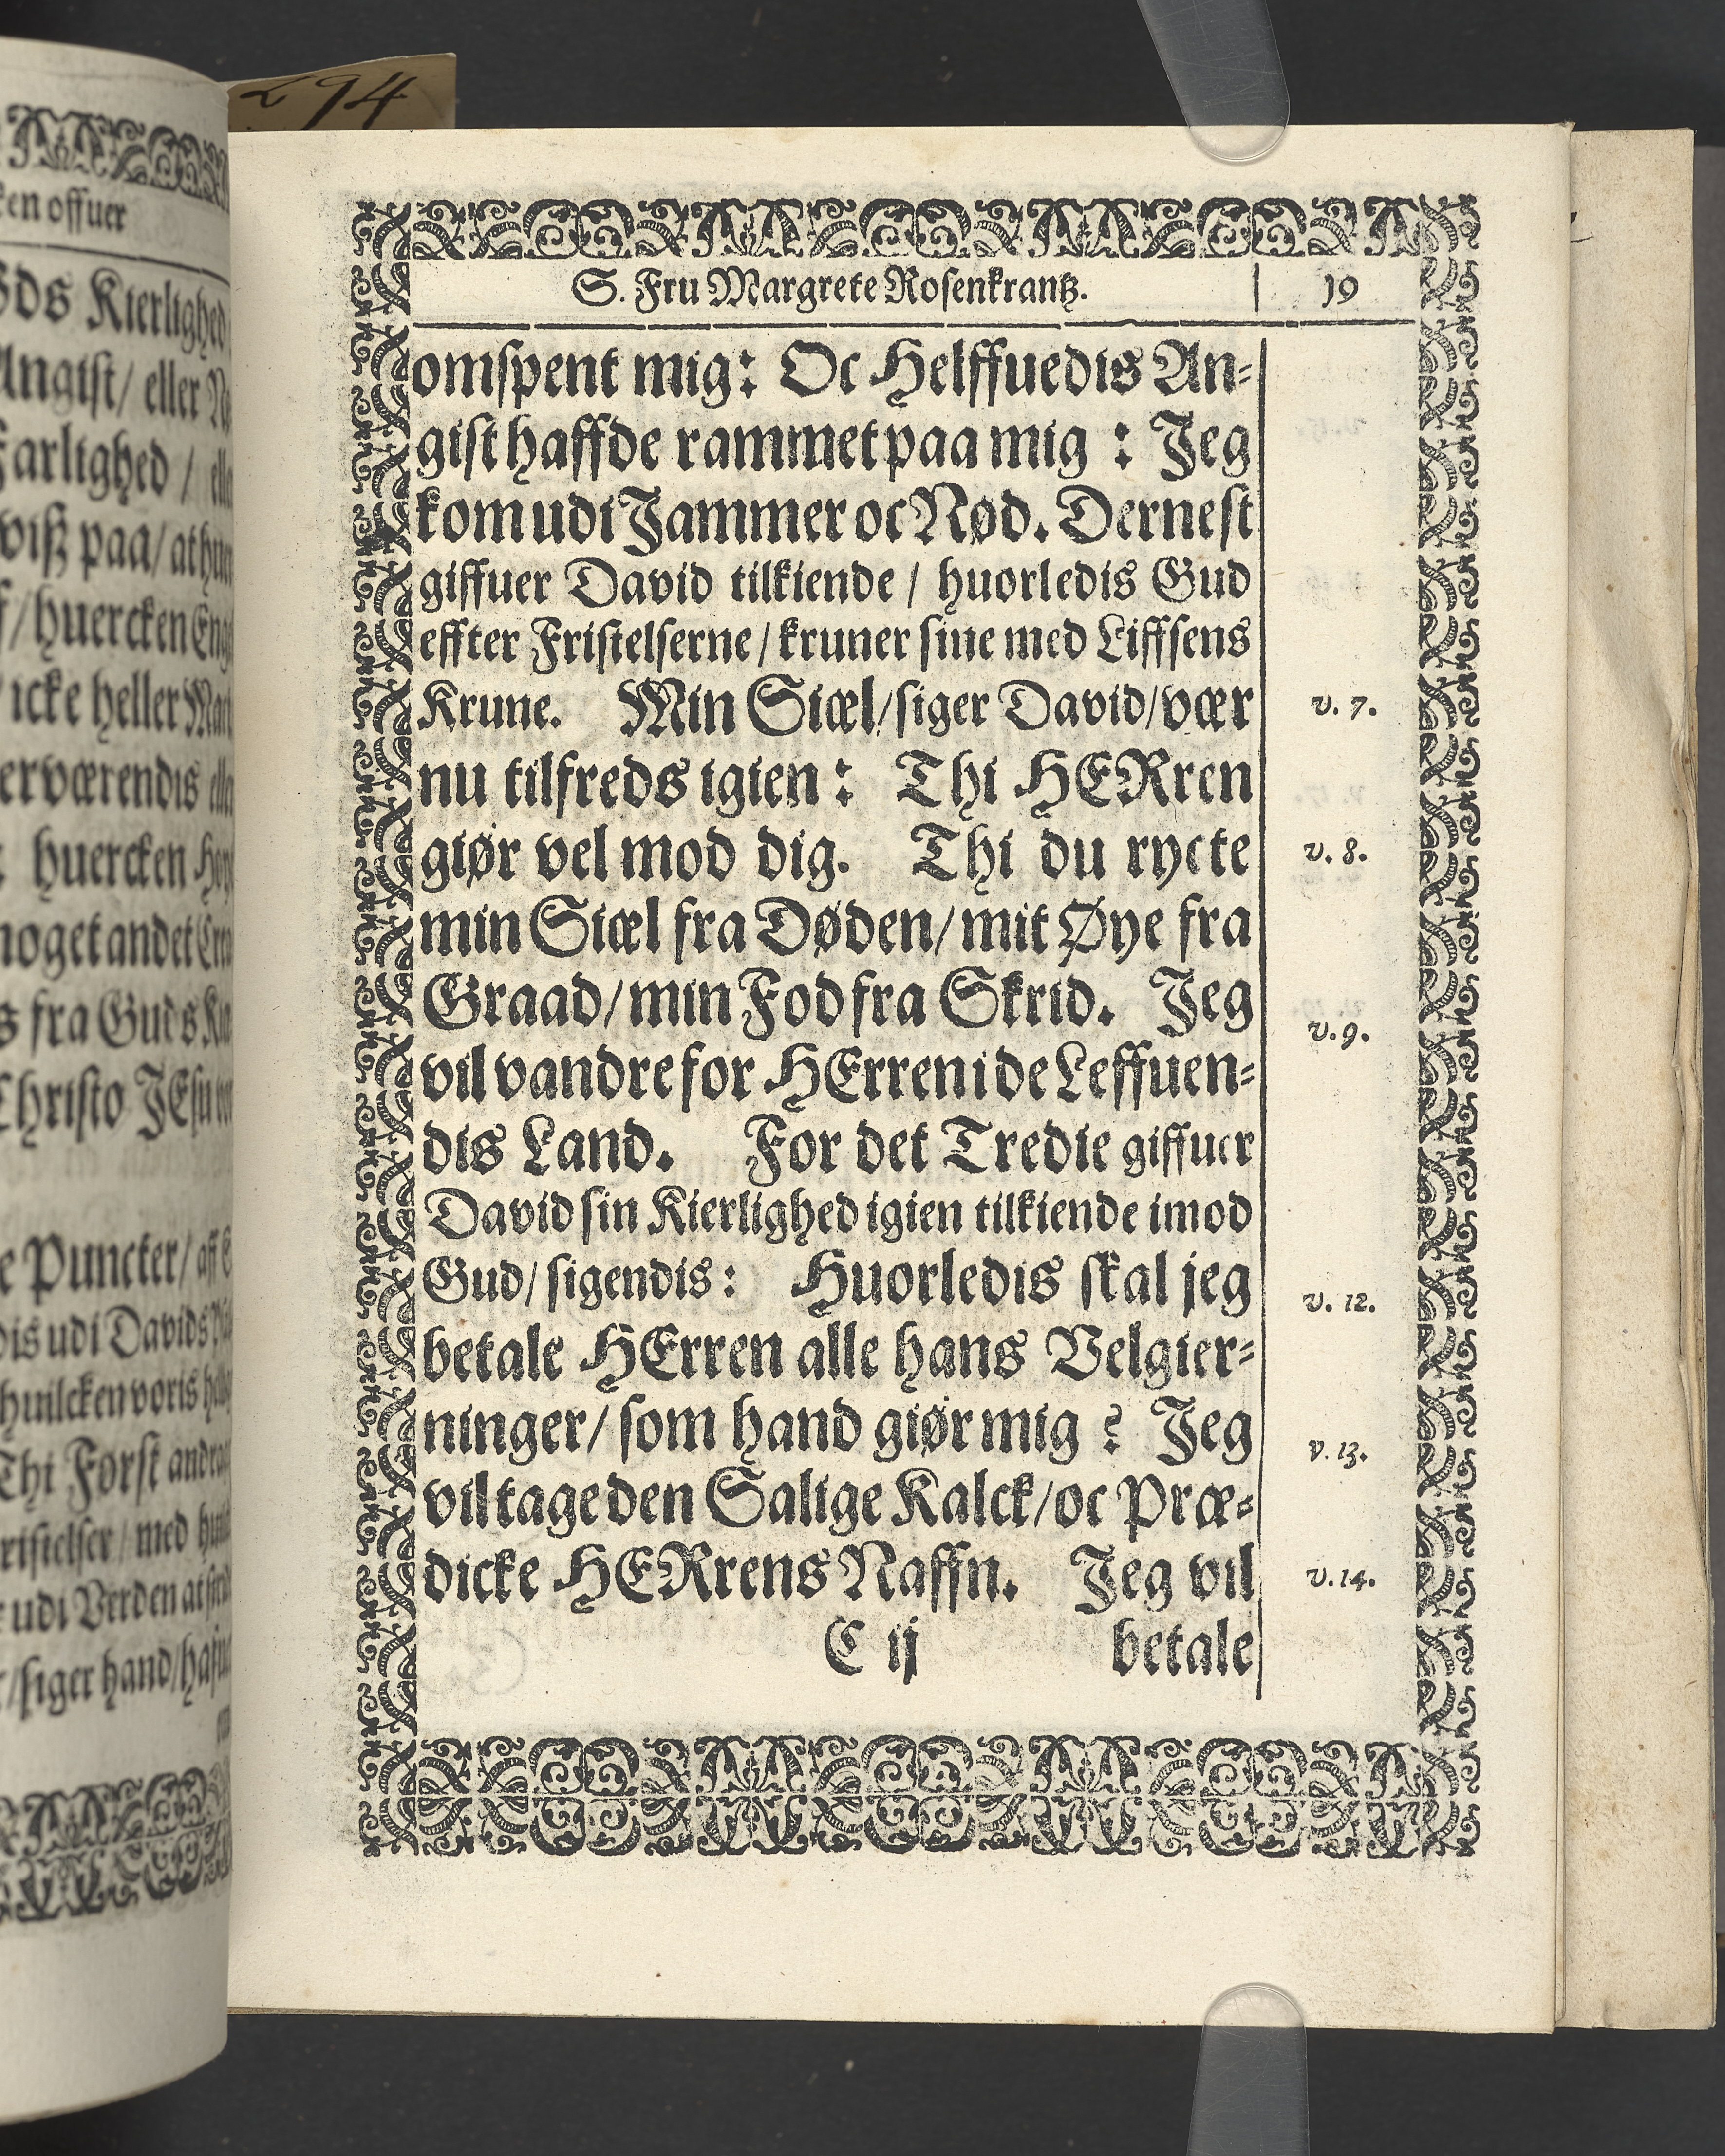 294
ken offuer
Kierlighed
Angist/ eller
Farlighed /
paa/
/ huercken
icke heller
huercken
noget andet
fra Guds
Christo JEsu
Puncter/ aff
udi Davids
huilcken voris
Thi Først
med
udi Verden
/siger hand/
S. Fru Margrete Rosenkrantz. 19
omspent mig: Oc Helffuedis An-
gist haffde rammet paa mig : Jeg
kom udi Jammer oc Nød. Dernest
giffuer David tilkiende / huorledis Gud
effter Fristelserne / kruner sine med Liffsens
Krune. Min Siæl/ siger David/ vær v. 7.
nu tilfreds igien : Thi HERren
giør vel mod dig. Thi du rycte v. 8.
min Siæl fra Døden/ mit Øye fra
Graad/ min Fod fra Skrid. Jeg v. 9.
vil vandre for HErren i de Leffuen-
dis Land. For det Tredie giffuer
David sin Kierlighed igien tilkiende imod
Gud/ sigendis: Huorledis skal jeg v. 12.
betale HErren alle hans Velgier-
ninger/ som hand giør mig ? Jeg v. 13.
vil tage den Salige Kalck/ oc Præ-
dicke HERrens Naffn. Jeg vil v. 14.
C ij betale